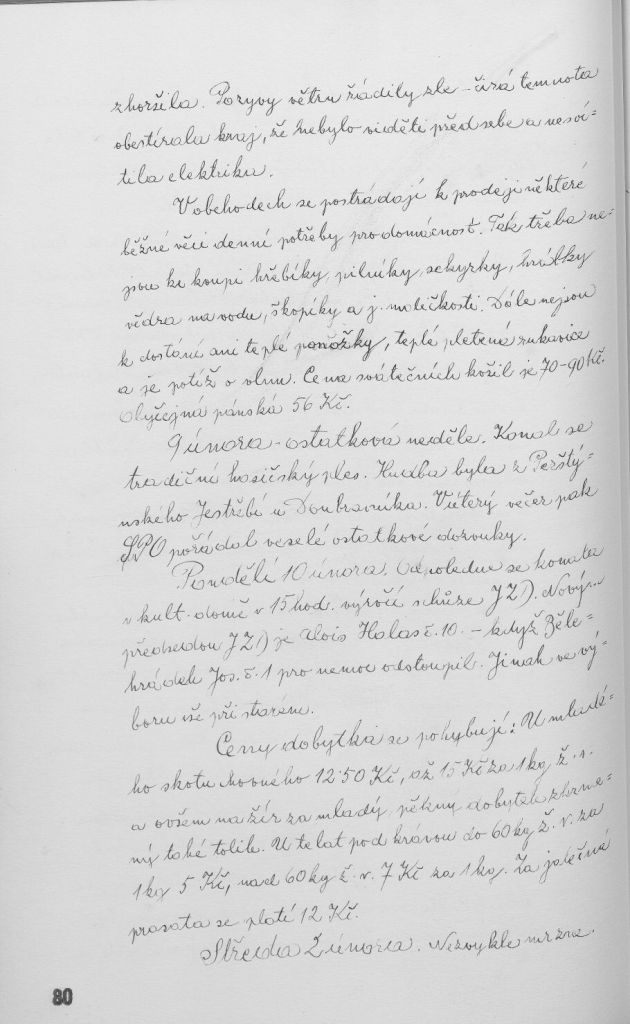 zhoršila. Poryvy větru řádily zle - čirá temnota
obestírala kraj, že nebylo viděti před sebe a nesví-
tila elektrika.
V obchodech se postrádají k prodeji některé
běžné věci denní potřeby pro domácnost. Tak třeba ne-
jsou ke koupi hřebíky, pilníky, sekyrky, hrábky
vědra na vodu, škopíky a j. maličkosti. Dále nejsou
k dostání ani teplé ponožky, teplé pletené rukavice
a je potíž o vlnu. Cena svátečních košil je 70-90 Kč.
Obyčejná pánská 56 Kč.
9 února - ostatková neděle. Konal se
tradiční hasičský ples. Hudba byla z Perštý-
nského Jestřebí u Doubravníka. V úterý večer pak
SPO pořádal veselé ostatkové dozvuky.
Pondělí 10 února. Odpoledne se konala
v kult. domě v 15 hod. výroční schůze JZD. Novým
předsedou JZD je Alois Halas č. 10. - když Zěle-
hrádek Jos. č. 1 pro nemoc odstoupil. Jinak ve vý-
boru vše při starém.
Ceny dobytka se pohybují: U mladé-
ho skotu chovného 12·50 Kč, až 15 Kč za 1 kg ž. v.
a ovšem na žír za mladý, pěkný dobytek
ný také tolik. U telat pod krávou do 60 kg ž. v. za
1 kg 5 Kč, nad 60 kg ž. v. 7 Kč za 1 kg. Za jatečná
prasata se platí 12 Kč.
Středa února. Nezvykle mrzne.
80